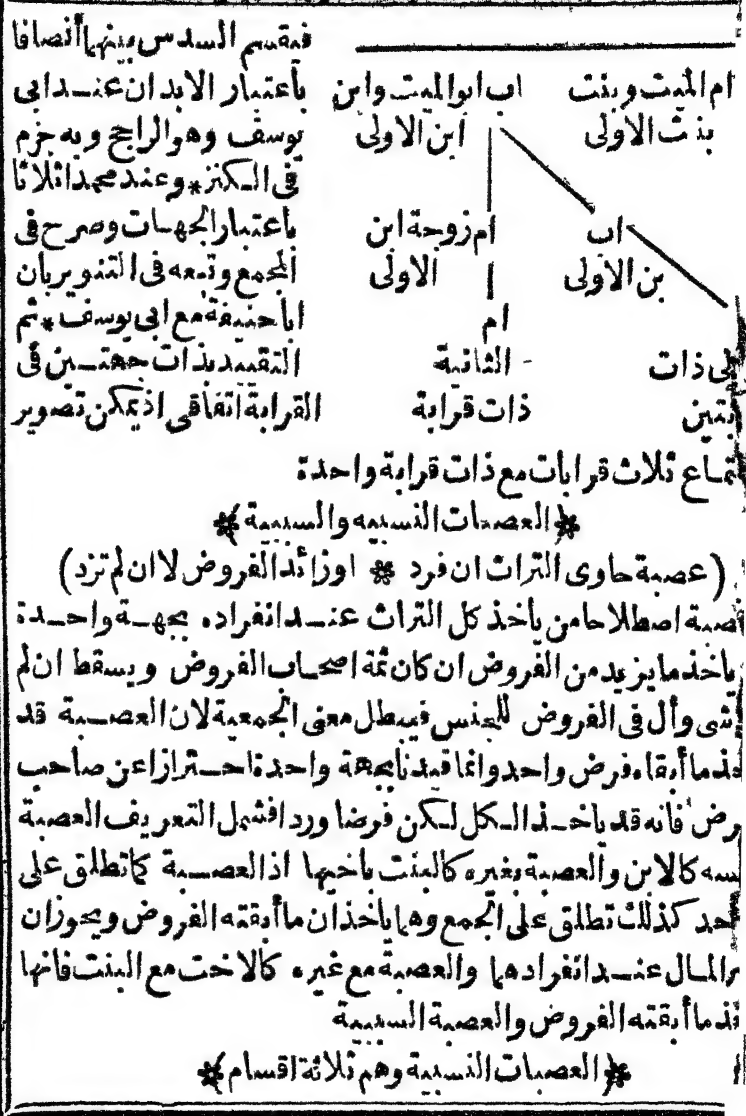 فيقسم السدس بينهما أنصافا
ام الميت وبنت اب ابو الميت وابن باعتبار الابدان عند ابى
بنت الاولى ابن الاولى يوسف وهو الراجح وبه جزم
فى الكنز * وعند محمد اثلاثا
اب ام زوجة ابن باعتبار الجهات وصرح فى
بن الاولى الاولى المجمع وتبعه فى التنوير بان
ام ابا حنيفة مع ابى يوسف * ثم
ذات الثانية التقييد بذات جهتين فى
ذات قرابة القرابة اتفاقى اذ يمكن تصوير
ثلاث قرابات مع ذات قرابة واحدة
* العصبات النسبيه والسببية *
(عصبة حاوى التراث ان فرد * او زائد الفروض لا ان لم تزد)
اصطلاحا من ياخذ كل التراث عند انفراده بجهة واحدة
ياخذ ما يزيد من الفروض ان كان ثمة اصحاب الفروض ويسقط ان لم
وأل فى الفروض للجنس فيبطل معنى الجمعية لان العصبة قد
ما أبقاه فرض واحد وانما قيدنا بجهة واحدة احترازا عن صاحب
فانه قد ياخذ الكل لكن فرضا وردا فشمل التعريف العصبة
كالابن والعصبة بغيره كالبنت باخيها اذ العصبة كما تطلق على
كذلك تطلق على الجمع وهما ياخذان ما أبقته الفروض ويحوزان
المال عند انفرادهما والعصبة مع غيره كالاخت مع البنت فانها
ما أبقته الفروض والعصبة السببية
* العصبات النسبية وهم ثلاثة اقسام *